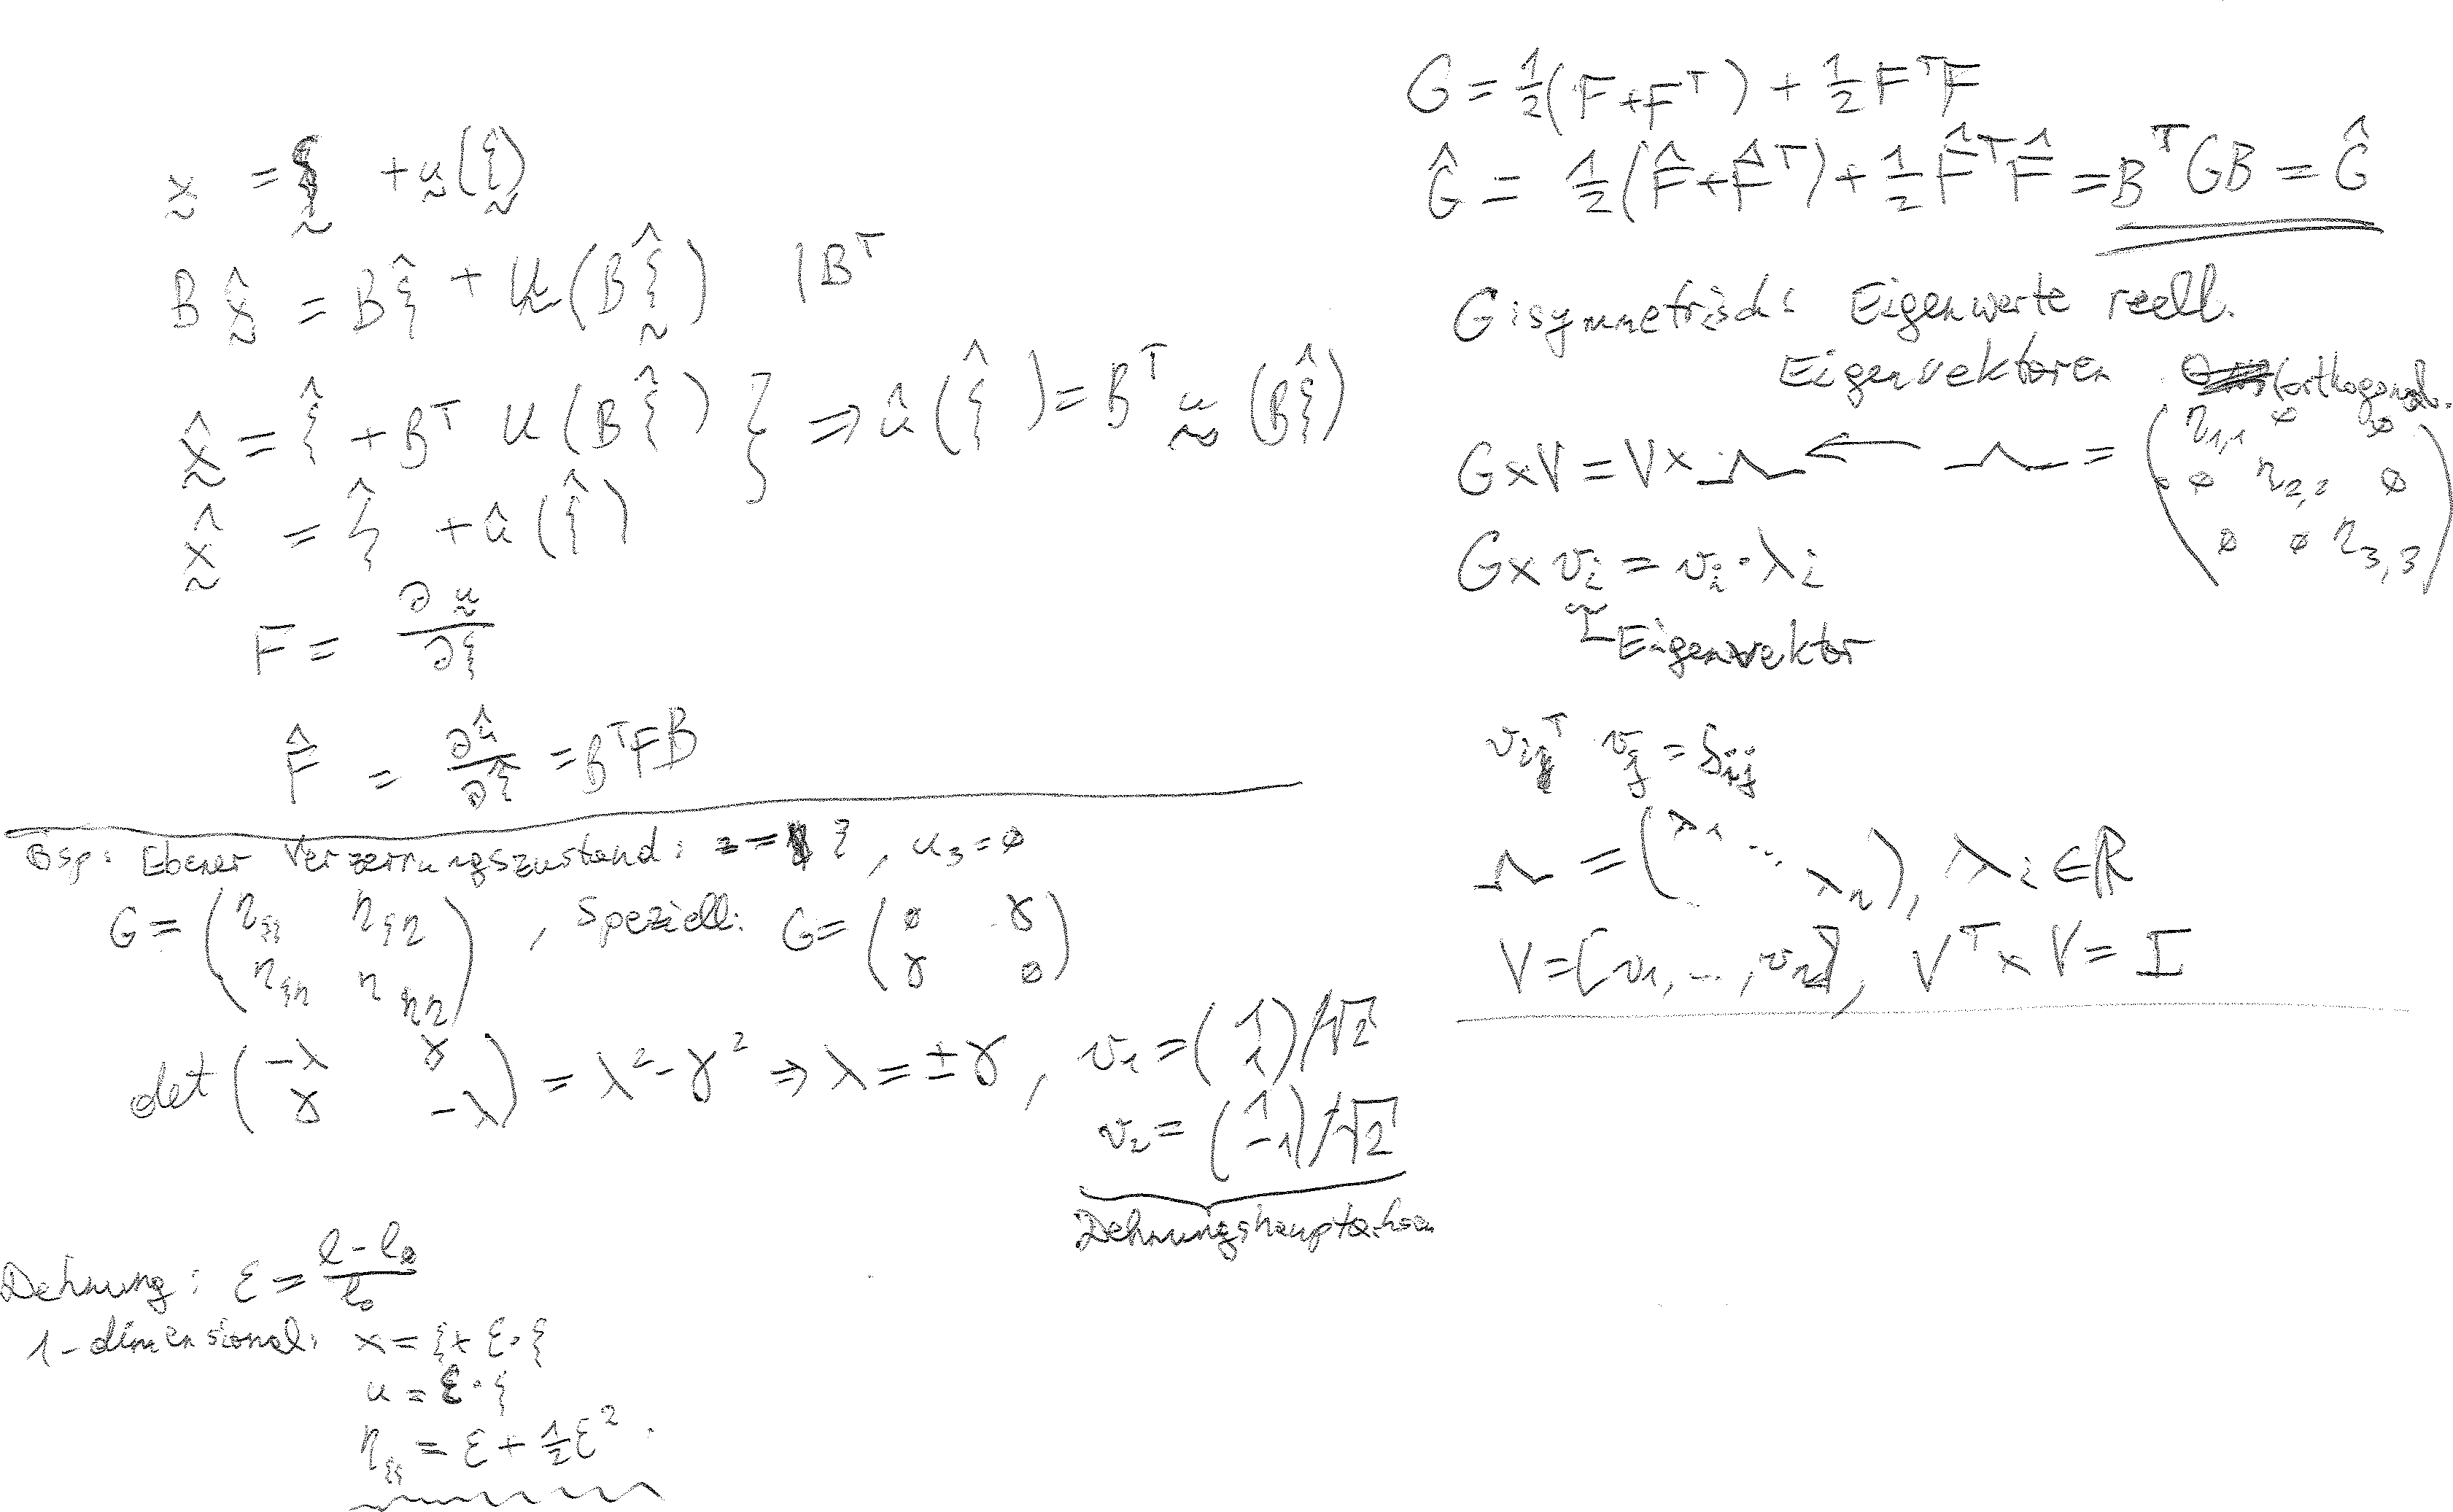 x = ξ + u(ξ̂)
B x̂ = B ξ̂ + u(B ξ̂) | Bᵀ
x̂ = ξ̂ + Bᵀ u(B ξ̂) } ⇒ û(ξ̂) = Bᵀ u(B ξ̂)
x̂ = ξ̂ + û(ξ̂)
F = ∂u/∂ξ
F̂ = ∂û/∂ξ̂ = BᵀFB
Bsp: Ebener Verzerrungszustand: z = ζ, u₃ = 0
G = (η_ξξ η_ξη
η_ξη η_ηη), speziell: G = (0 γ
γ 0)
det (-λ γ
γ -λ) = λ² - γ² ⇒ λ = ±γ, v₁ = (1
1)/√2
v₂ = (1
-1)/√2
Dehnungshauptachsen
Dehnung: ε = (l - l₀)/l₀
1-dimensional: x = ξ + ε·ξ
u = ε·ξ
η_ξξ = ε + ½ε²
G = ½(F + Fᵀ) + ½FᵀF
Ĝ = ½(F̂ + F̂ᵀ) + ½F̂ᵀF̂ = BᵀGB = Ĝ
G symmetrisch: Eigenwerte reell.
Eigenvektoren orthogonal.
G×V = V×Λ ← Λ = (η₁,₁ 0 0
0 η₂,₂ 0
0 0 η₃,₃)
G×vᵢ = vᵢ·λᵢ
Eigenvektor
vᵢᵀ vⱼ = δᵢⱼ
Λ = (λ₁ ... λₙ), λᵢ ∈ ℝ
V = [v₁, ..., vₙ], Vᵀ × V = I